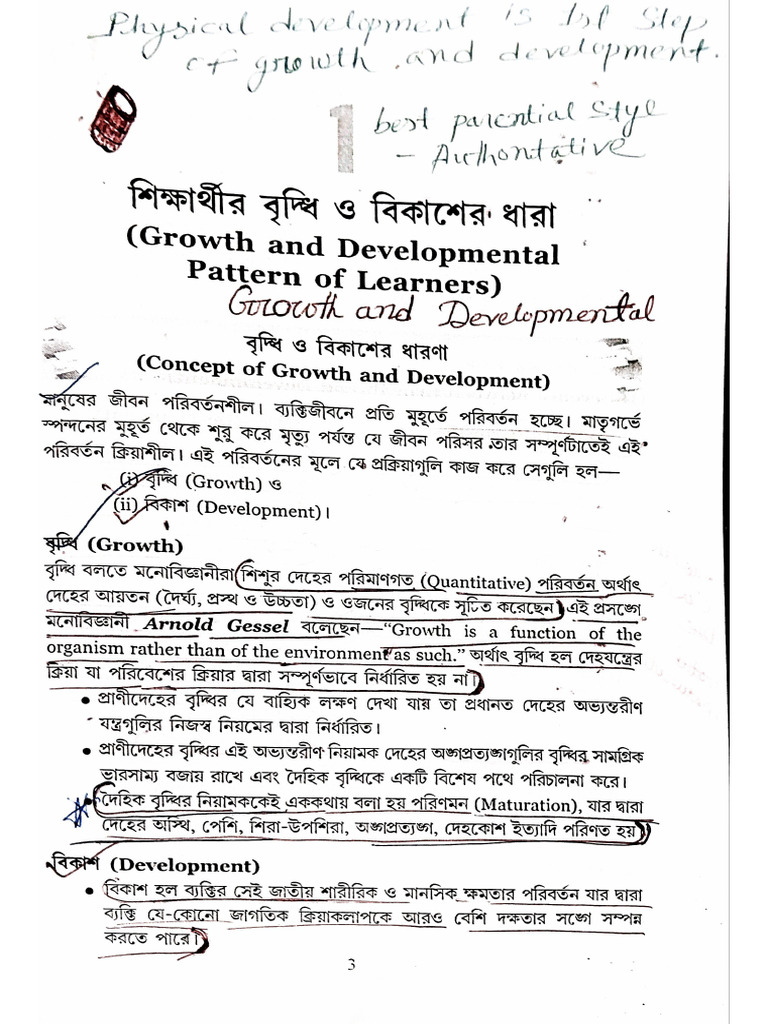 Physical development is 1st Step
of growth and development.
1
best parential Style
- Authoritative
শিক্ষার্থীর বৃদ্ধি ও বিকাশের ধারা
(Growth and Developmental
Pattern of Learners)
Growth and Developmental
বৃদ্ধি ও বিকাশের ধারণা
(Concept of Growth and Development)
মানুষের জীবন পরিবর্তনশীল। ব্যক্তিজীবনে প্রতি মুহূর্তে পরিবর্তন হচ্ছে। মাতৃগর্ভে
স্পন্দনের মুহূর্ত থেকে শুরু করে মৃত্যু পর্যন্ত যে জীবন পরিসর তার সম্পূর্ণটাতেই এই
পরিবর্তন ক্রিয়াশীল। এই পরিবর্তনের মূলে যে প্রক্রিয়াগুলি কাজ করে সেগুলি হল—
(i) বৃদ্ধি (Growth) ও
(ii) বিকাশ (Development)।
বৃদ্ধি (Growth)
বৃদ্ধি বলতে মনোবিজ্ঞানীরা শিশুর দেহের পরিমাণগত (Quantitative) পরিবর্তন অর্থাৎ
দেহের আয়তন (দৈর্ঘ্য, প্রস্থ ও উচ্চতা) ও ওজনের বৃদ্ধিকে সূচিত করেছেন। এই প্রসঙ্গে
মনোবিজ্ঞানী Arnold Gessel বলেছেন—“Growth is a function of the
organism rather than of the environment as such.” অর্থাৎ বৃদ্ধি হল দেহযন্ত্রের
ক্রিয়া যা পরিবেশের ক্রিয়ার দ্বারা সম্পূর্ণভাবে নির্ধারিত হয় না।
• প্রাণীদেহের বৃদ্ধির যে বাহ্যিক লক্ষণ দেখা যায় তা প্রধানত দেহের অভ্যন্তরীণ
যন্ত্রগুলির নিজস্ব নিয়মের দ্বারা নির্ধারিত।
• প্রাণীদেহের বৃদ্ধির এই অভ্যন্তরীণ নিয়ামক দেহের অঙ্গপ্রত্যঙ্গগুলির বৃদ্ধির সামগ্রিক
ভারসাম্য বজায় রাখে এবং দৈহিক বৃদ্ধিকে একটি বিশেষ পথে পরিচালনা করে।
• দৈহিক বৃদ্ধির নিয়ামককেই এককথায় বলা হয় পরিণমন (Maturation), যার দ্বারা
দেহের অস্থি, পেশি, শিরা-উপশিরা, অঙ্গপ্রত্যঙ্গ, দেহকোশ ইত্যাদি পরিণত হয়।
বিকাশ (Development)
• বিকাশ হল ব্যক্তির সেই জাতীয় শারীরিক ও মানসিক ক্ষমতার পরিবর্তন যার দ্বারা
ব্যক্তি যে-কোনো জাগতিক ক্রিয়াকলাপকে আরও বেশি দক্ষতার সঙ্গে সম্পন্ন
করতে পারে।
3